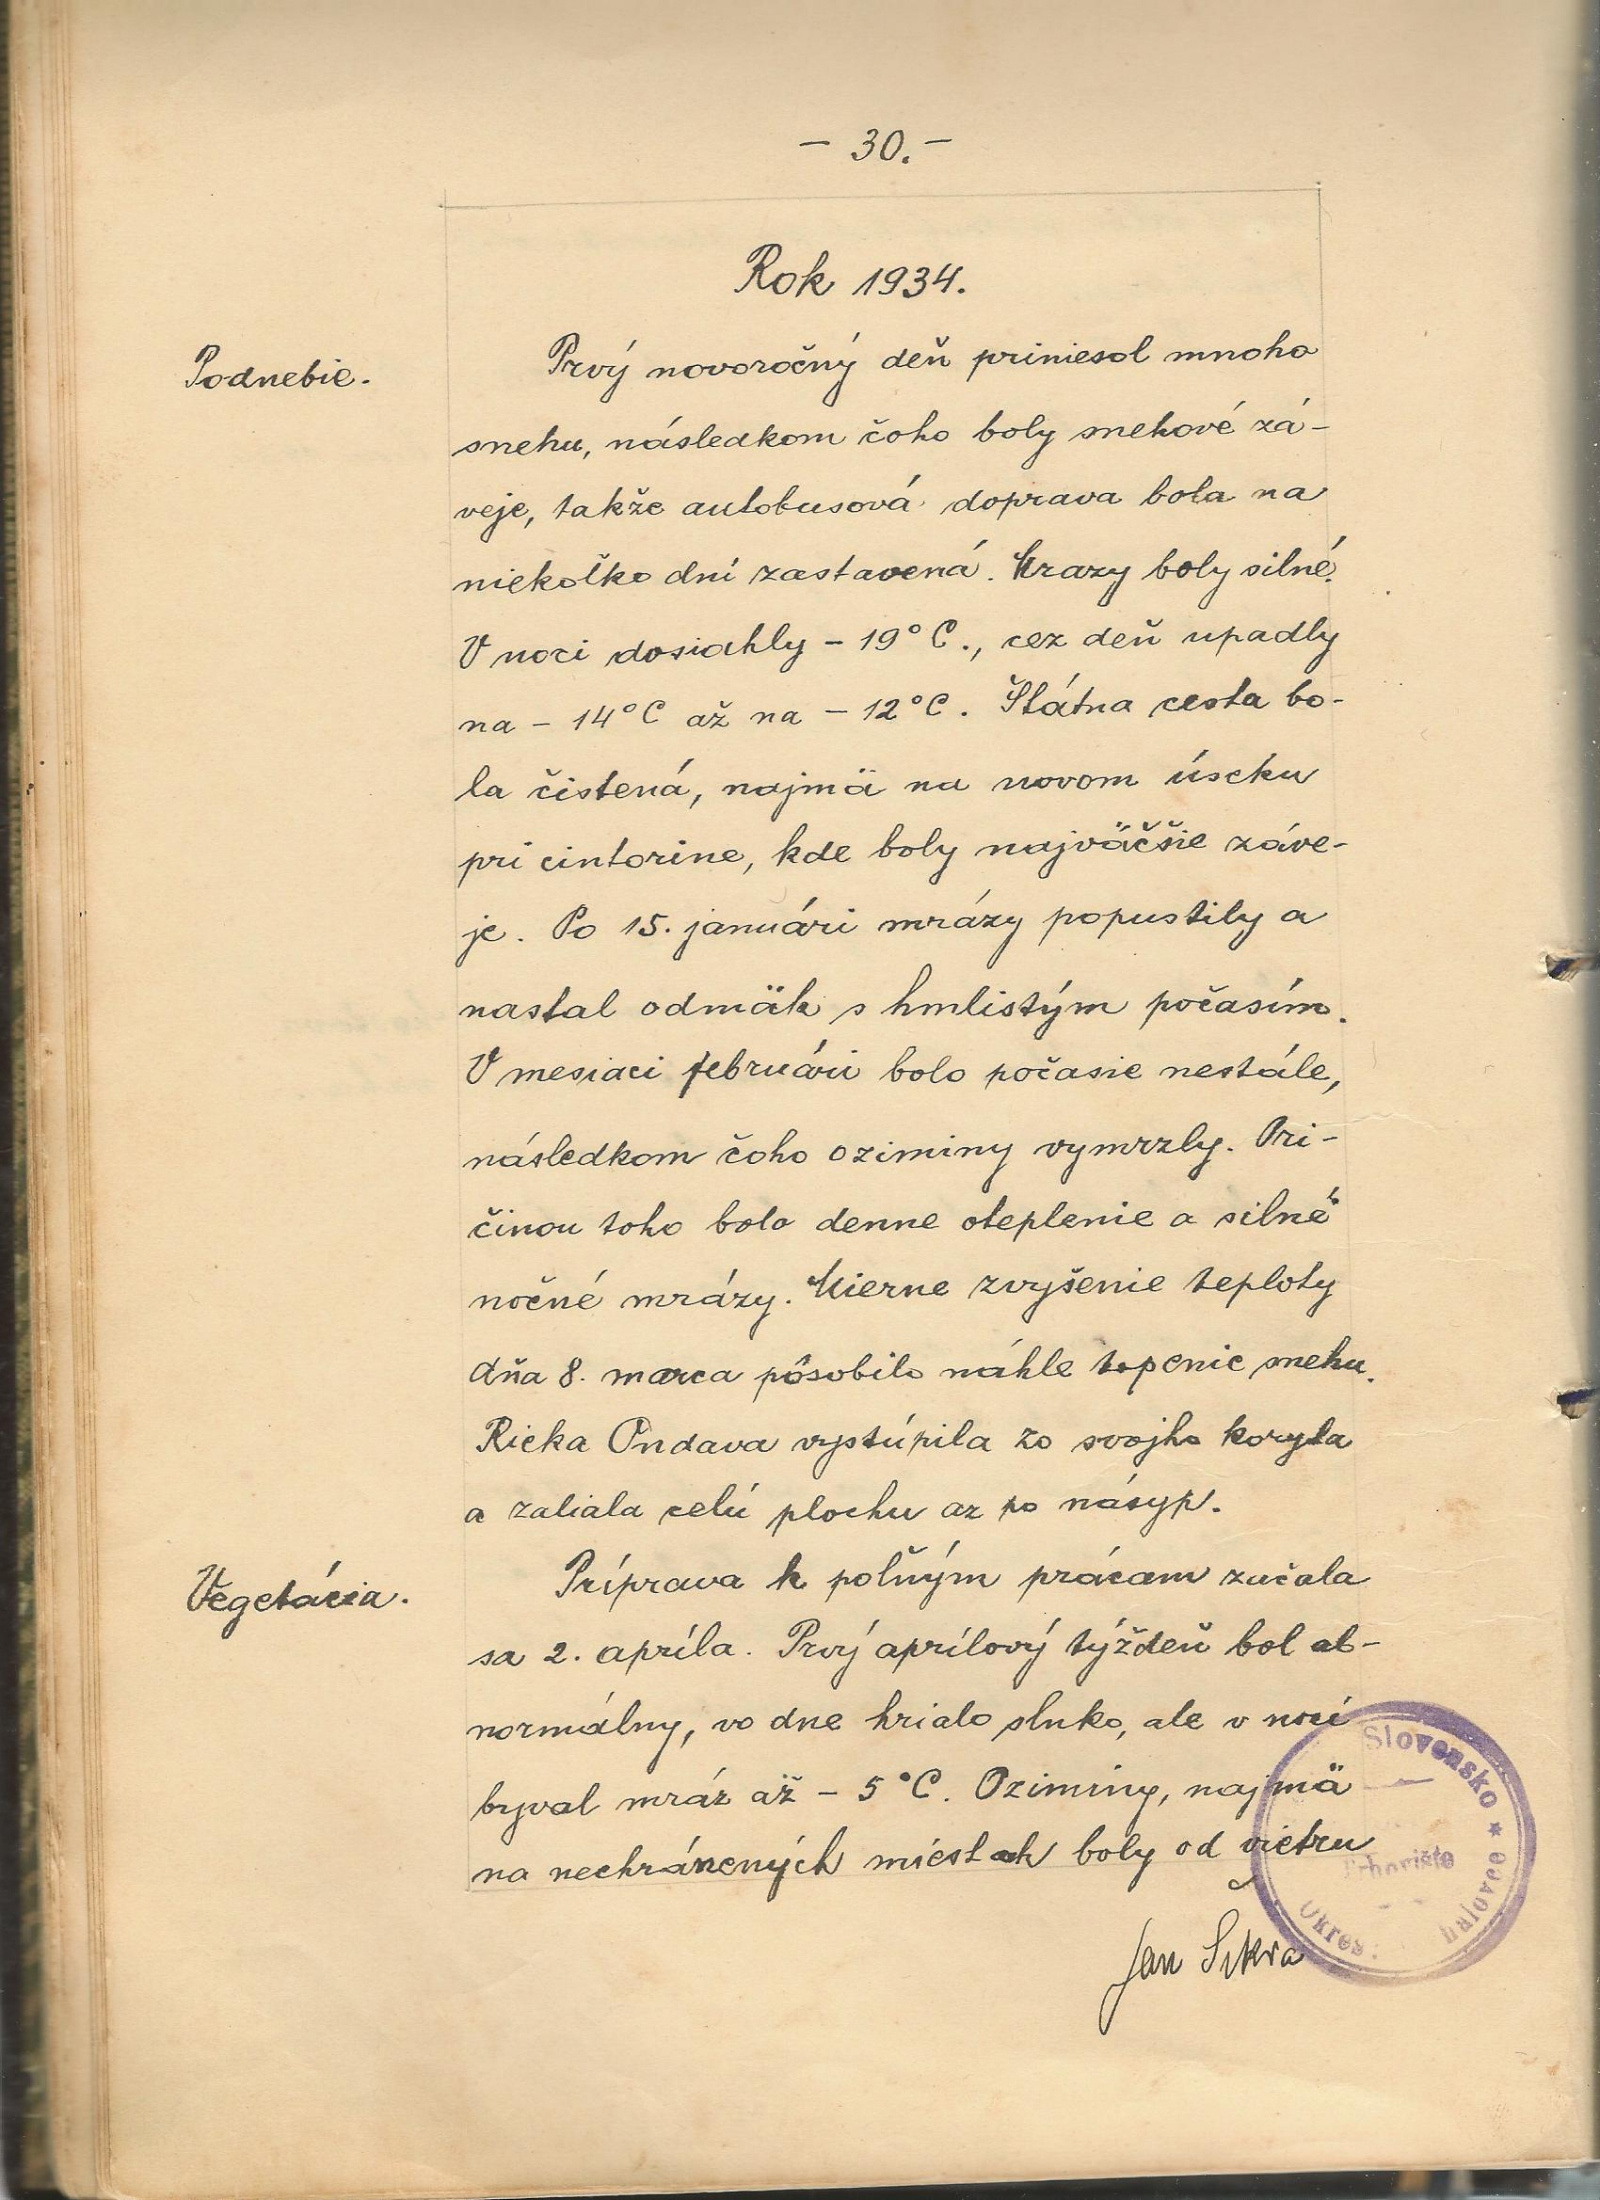 - 30. -
Rok 1934.
Podnebie.
Prvý novoročný deň priniesol mnoho
snehu, následkom čoho boly snehové zá-
veje, takže autobusová doprava bola na
niekoľko dní zastavená. Mrazy boly silné.
V noci dosiahly - 19° C., cez deň upadly
na - 14° C až na - 12° C. Štátna cesta bo-
la čistená, najmä na novom úseku
pri cintoríne, kde boly najväčšie záve-
je. Po 15. januári mrázy popustily a
nastal odmäk s hmlistým počasím.
V mesiaci februári bolo počasie nestále,
následkom čoho oziminy vymrzly. Prí-
činou toho bolo denne oteplenie a silné
nočné mrázy. Mierne zvyšenie teploty
dňa 8. marca pôsobilo náhle topenie snehu.
Rieka Ondava vystúpila zo svojho koryta
a zaliala celú plochu az po násyp.
Vegetácia.
Príprava k poľným prácam začala
sa 2. apríla. Prvý aprílový týždeň bol ab-
normálny, vo dne hrialo slnko, ale v noci
byval mráz až - 5° C. Oziminy, najmä
na nechránených miestach boly od vietru
Jan Šikra
Slovensko * Trhovište
Okres: